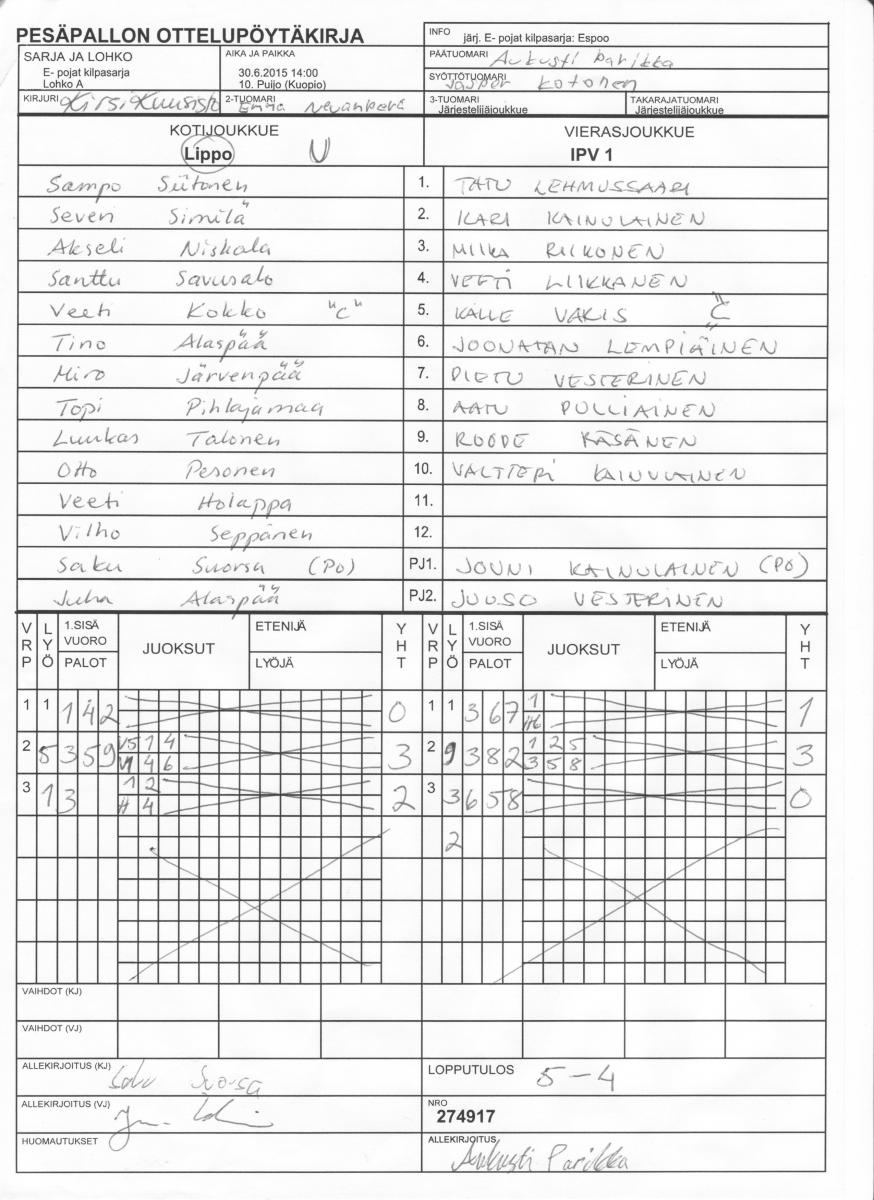 PESÄPALLON OTTELUPÖYTÄKIRJA
INFO järj. E- pojat kilpasarja: Espoo
SARJA JA LOHKO
E- pojat kilpasarja
Lohko A
AIKA JA PAIKKA
30.6.2015 14:00
10. Puijo (Kuopio)
PÄÄTUOMARI Aukusti Parikka
SYÖTTÖTUOMARI Jasper Kotonen
KIRJURI Kirsi Kuusisto
2-TUOMARI Enna
3-TUOMARI
Järjestelijäjoukkue
TAKARAJATUOMARI
Järjestelijäjoukkue
KOTIJOUKKUE
Lippo U
VIERASJOUKKUE
IPV 1
Sampo Siitonen 1. TATU LEHMUSSAARI
Severi Similä 2. KARI KAINULAINEN
Akseli Niskala 3. MIIKA RIIKONEN
Santtu Savusalo 4. VEETI LIIKKANEN
Veeti Kokko "C" 5. KALLE VAKIS "C"
Tino Alaspää 6. JOONATAN LEMPIÄINEN
Miro Järvenpää 7. PIETU VESTERINEN
Topi Pihlajamaa 8. AATU PULLIAINEN
Luukas Talonen 9. ROOPE KÄSÄNEN
Otto Pesonen 10. VALTTERI KAINULAINEN
Veeti Holappa 11.
Vilho Seppänen 12.
Saku Suorsa (PO) PJ1. JOUNI KAINULAINEN (PO)
Juha Alaspää PJ2. JUUSO VESTERINEN
VRP LYÖ 1.SISÄ VUORO PALOT JUOKSUT ETENIJÄ LYÖJÄ YHT VRP LYÖ 1.SISÄ VUORO PALOT JUOKSUT ETENIJÄ LYÖJÄ YHT
1 1 1 4 2 0 1 1 3 6 7 1 1
H6
2 5 3 5 9 V5 1 4 3 2 9 3 8 2 1 2 5 3
V1 4 6 3 5 8
3 1 3 1 2 2 3 3 6 5 8 0
H 4
2
VAIHDOT (KJ)
VAIHDOT (VJ)
ALLEKIRJOITUS (KJ) Saku Suorsa
LOPPUTULOS 5 - 4
ALLEKIRJOITUS (VJ)
NRO
274917
HUOMAUTUKSET
ALLEKIRJOITUS
Aukusti Parikka